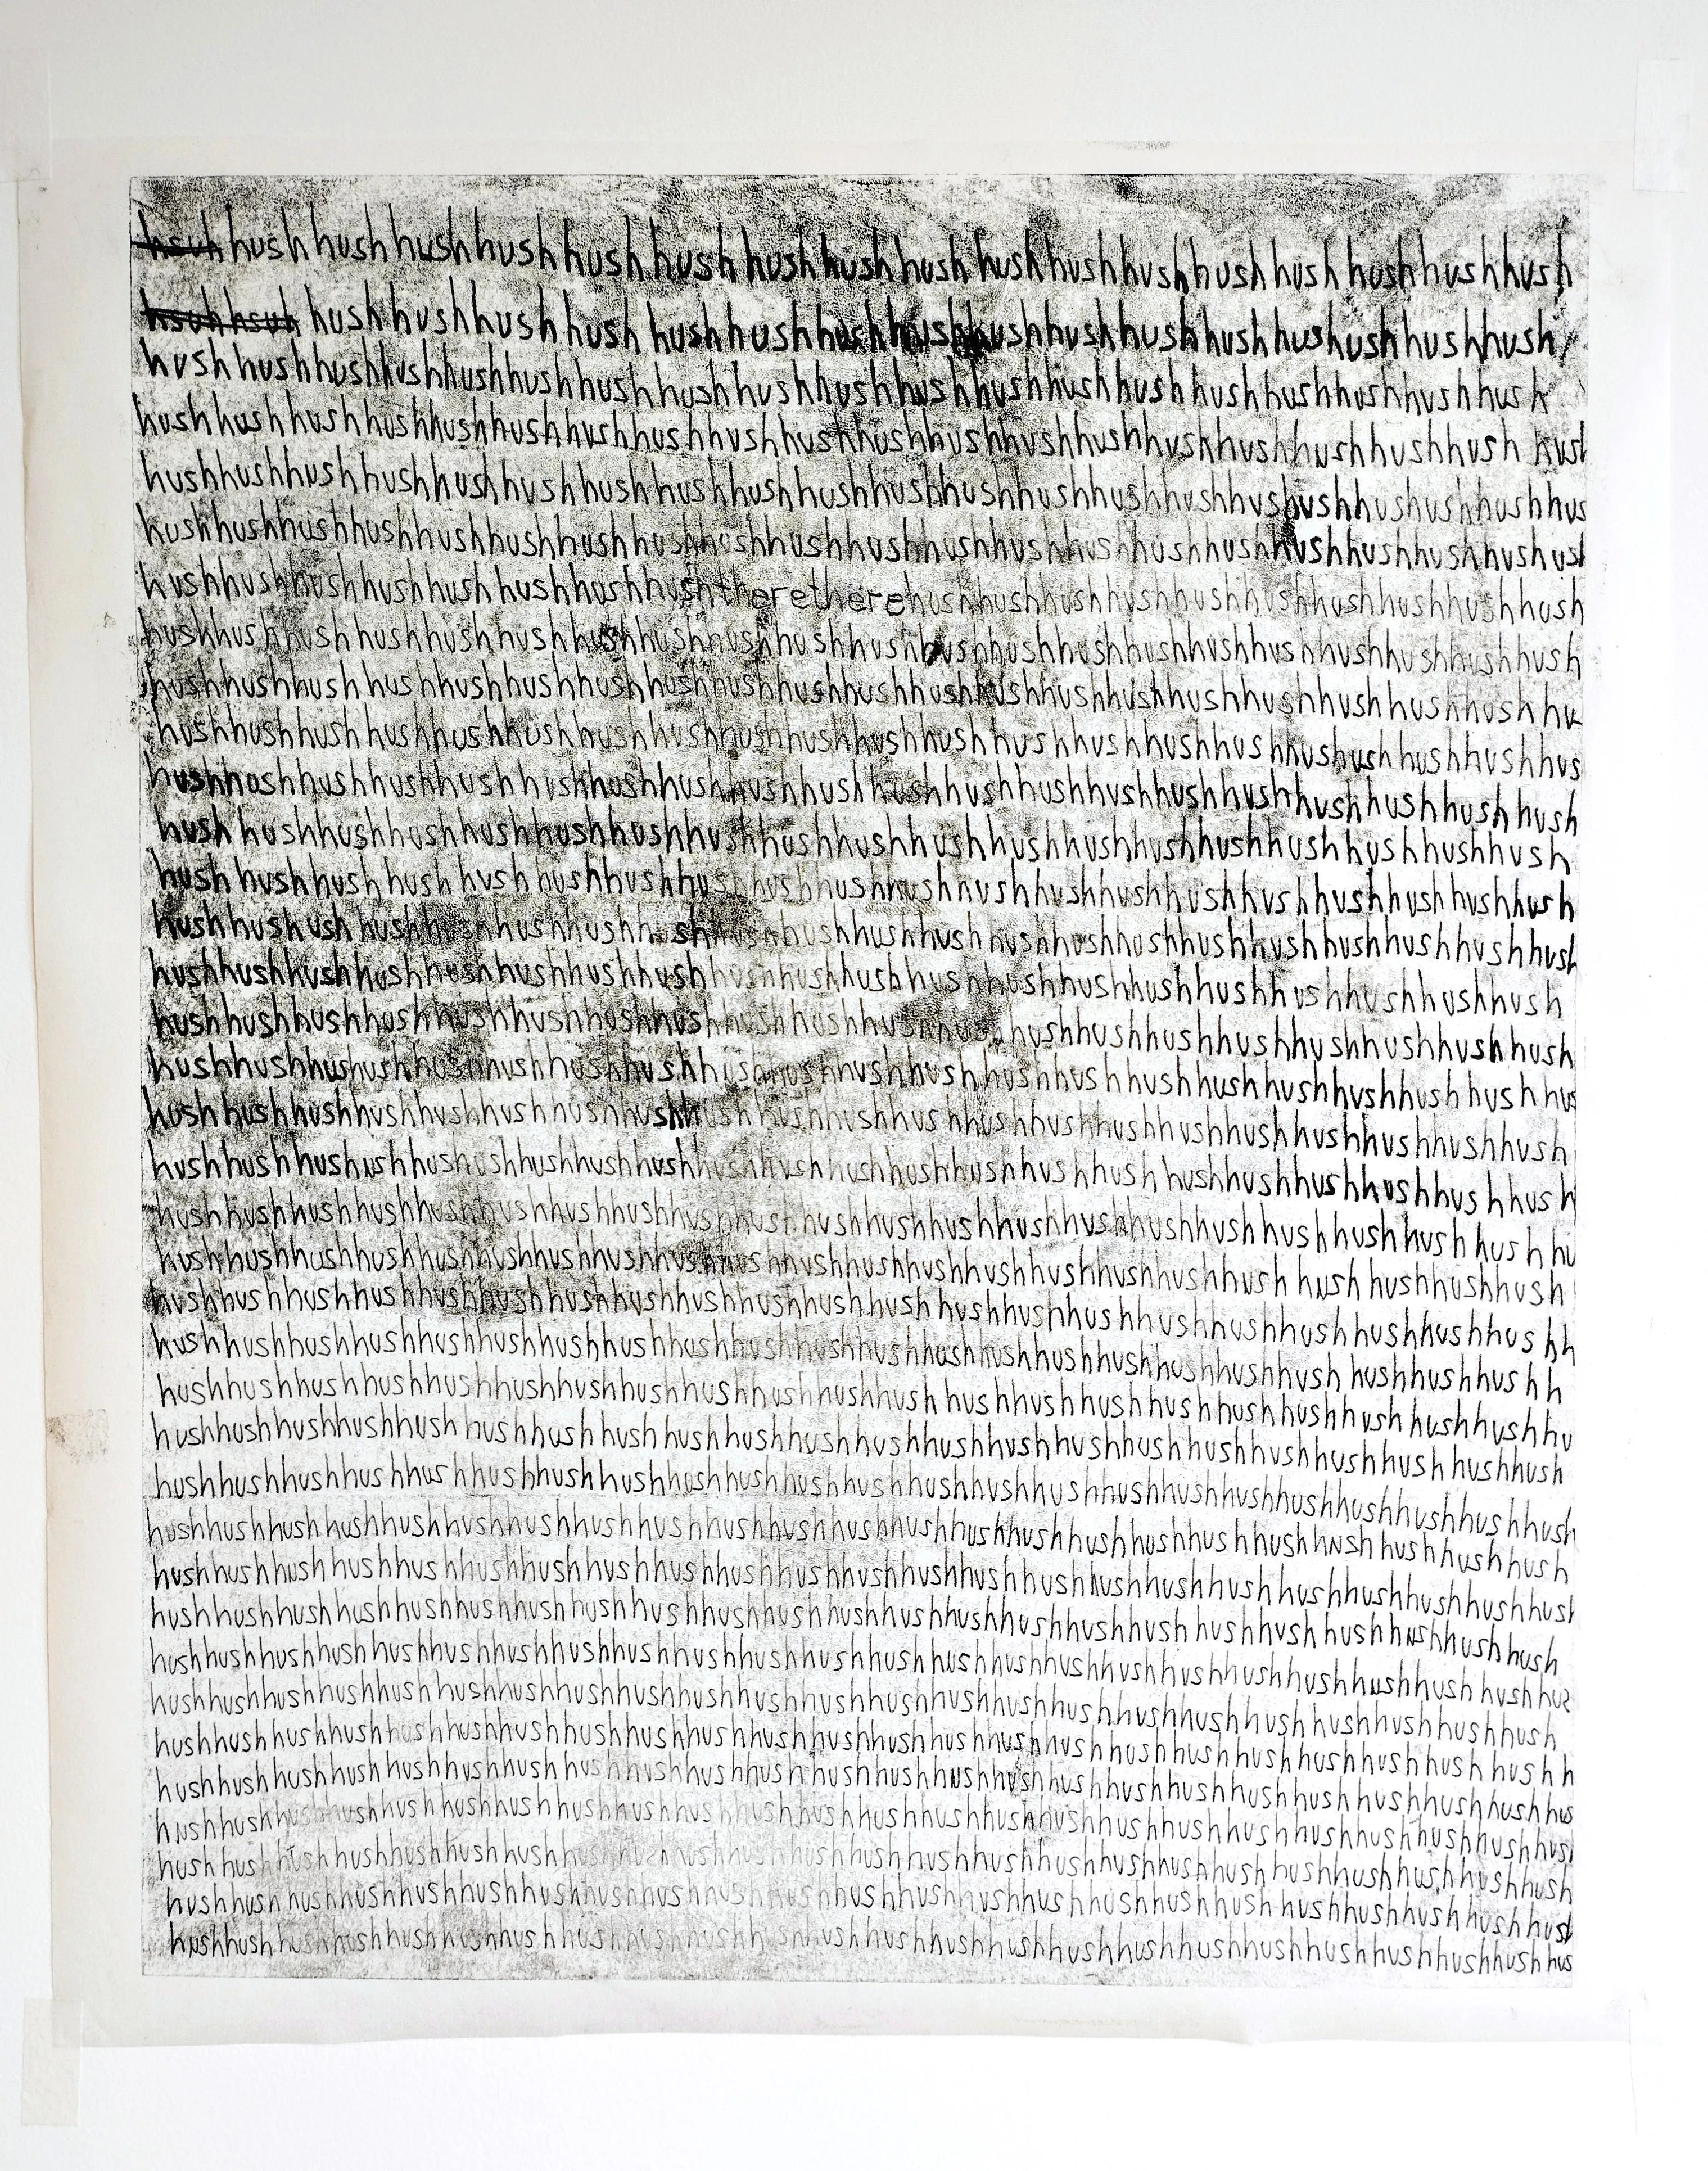 hsuh hush hush hush hush hush hush hush hush hush hush hush hush hush hush hush hush hush
hsuh hsuh hush hush hush hush hush hush hush hush hush hush hush hush hus hush hush hush
hush hush hush hush hush hush hush hush hush hush hush hush hush hush hush hush hush hush hush
hush hush hush hush hush hush hush hush hush hush hush hush hush hush hush hush hush hush hush hush
hush hush hush hush hush hush hush hush hush hush hush hush hush hush hush hush hush hush hush hus
hush hush hush hush hush hush hush hush hush hush hush hush hush hush hush hush hush hush hush hush
hush hush hush hush hush hush hush hush there there hush hush hush hush hush hush hush hush hush hush
hush hush hush hush hush hush hush hush hush hush hush hush hush hush hush hush hush hush hush hush
hush hush hush hush hush hush hush hush hush hush hush hush hush hush hush hush hush hush hush hu
hush hush hush hush hush hush hush hush hush hush hush hush hush hush hush hush hush hush hush hus
hush hush hush hush hush hush hush hush hush hush hush hush hush hush hush hush hush hush hush hush
hush hush hush hush hush hush hush hush hush hush hush hush hush hush hush hush hush hush hush
hush hush hush hush hush hush hush hush hush hush hush hush hush hush hush hush hush hush hush hush
hush hush hush hush hush hush hush hush hush hush hush hush hush hush hush hush hush hush hush hush
hush hush hush hush hush hush hush hush hush hush hush hush hush hush hush hush hush hush hush hush
hush hush hush hush hush hush hush hush hush hush hush hush hush hush hush hush hush hush hush hush
hush hush hush hush hush hush hush hush hush hush hush hush hush hush hush hush hush hush hush hush hus
hush hush hush hush hush hush hush hush hush hush hush hush hush hush hush hush hush hush hush hush
hush hush hush hush hush hush hush hush hush hush hush hush hush hush hush hush hush hush hush hush h
hush hush hush hush hush hush hush hush hush hush hush hush hush hush hush hush hush hush hush hush hu
hush hush hush hush hush hush hush hush hush hush hush hush hush hush hush hush hush hush hush hush
hush hush hush hush hush hush hush hush hush hush hush hush hush hush hush hush hush hush hush hush hh
hush hush hush hush hush hush hush hush hush hush hush hush hush hush hush hush hush hush hush hush h h
hush hush hush hush hush hush hush hush hush hush hush hush hush hush hush hush hush hush hush hush hu
hush hush hush hush hush hush hush hush hush hush hush hush hush hush hush hush hush hush hush hush hush
hush hush hush hush hush hush hush hush hush hush hush hush hush hush hush hush hush hush hush hush hush
hush hush hush hush hush hush hush hush hush hush hush hush hush hush hush hush hush hush hush hush hush
hush hush hush hush hush hush hush hush hush hush hush hush hush hush hush hush hush hush hush hush hush
hush hush hush hush hush hush hush hush hush hush hush hush hush hush hush hush hush hush hush hush hush
hush hush hush hush hush hush hush hush hush hush hush hush hush hush hush hush hush hush hush hush hus
hush hush hush hush hush hush hush hush hush hush hush hush hush hush hush hush hush hush hush hush hush
hush hush hush hush hush hush hush hush hush hush hush hush hush hush hush hush hush hush hush hush hush h
hush hush hush hush hush hush hush hush hush hush hush hush hush hush hush hush hush hush hush hush hus
hush hush hush hush hush hush hush hush hush hush hush hush hush hush hush hush hush hush hush hush hush
hush hush hush hush hush hush hush hush hush hush hush hush hush hush hush hush hush hush hush hush hush
hush hush hush hush hush hush hush hush hush hush hush hush hush hush hush hush hush hush hush hush hus